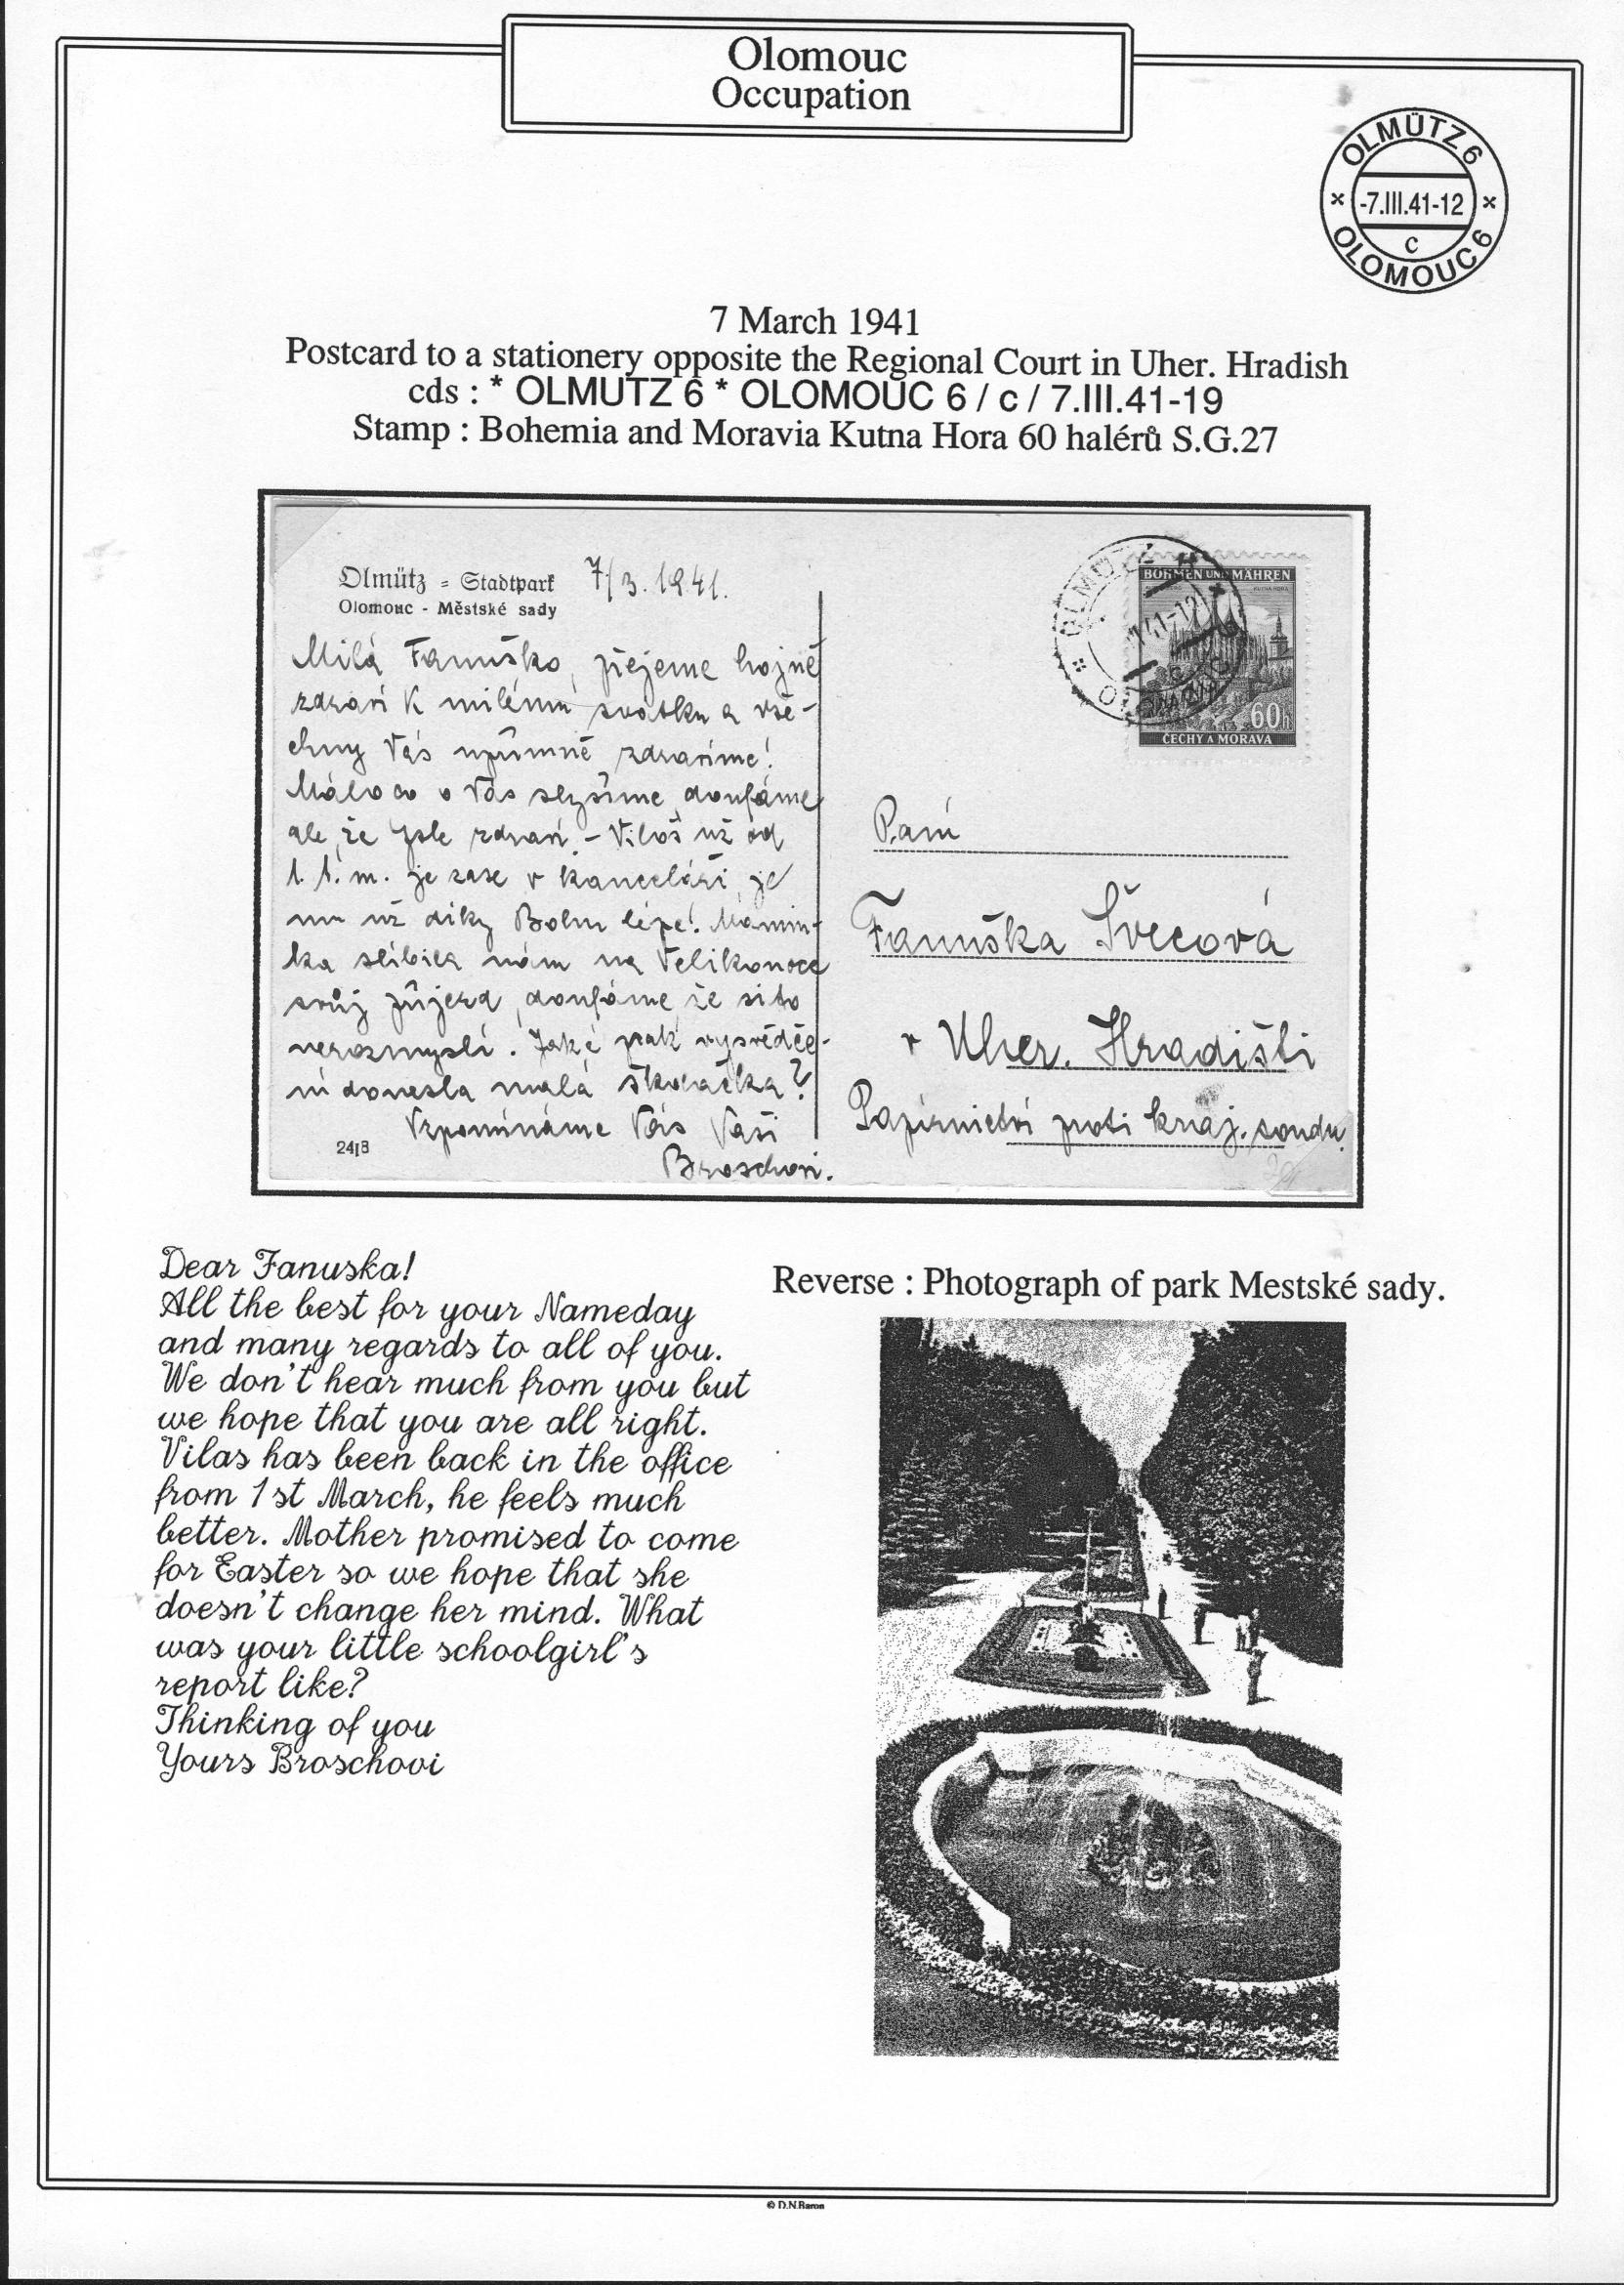 Olomouc
Occupation
OLMÜTZ 6
* -7.III.41-12 *
c
OLOMOUC 6
7 March 1941
Postcard to a stationery opposite the Regional Court in Uher. Hradish
cds : * OLMUTZ 6 * OLOMOUC 6 / c / 7.III.41-19
Stamp : Bohemia and Moravia Kutna Hora 60 halérů S.G.27
Olmütz = Stadtpark 7/3.1941.
Olomouc - Městské sady
Milá Fanuško, přejeme hojně
zdraví k milému svátku a vše-
chny Vás upřímně zdravíme!
Máloco o Vás slyšíme, doufáme
ale, že jste zdraví. - Viloš už od
1. t. m. je zase v kanceláři, je
mu už díky Bohu lépe! Mamin-
ka slíbila nám na Velikonoce
svůj příjezd, doufáme, že si to
nerozmyslí. Jaké pak vysvědče-
ní donesla malá školačka?
Vzpomínáme Vás Vaši
Broschovi.
2418
OLMÜTZ
41-12
BÖHMEN UND MÄHREN
KUTNÁ HORA
60h
ČECHY A MORAVA
Paní
Fanuška Švecová
v Uher. Hradišti
Papírnictví proti kraj. soudu.
Dear Fanuska!
All the best for your Nameday
and many regards to all of you.
We don't hear much from you but
we hope that you are all right.
Vilas has been back in the office
from 1st March, he feels much
better. Mother promised to come
for Easter so we hope that she
doesn't change her mind. What
was your little schoolgirl's
report like?
Thinking of you
Yours Broschovi
Reverse : Photograph of park Mestské sady.
© D.N.Baron